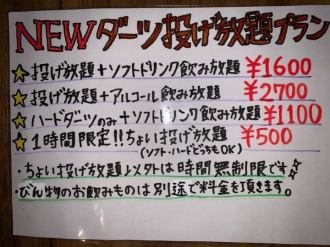 NEWダーツ投げ放題プラン
☆投げ放題+ソフトドリンク飲み放題 ¥1600
☆投げ放題+アルコール飲み放題 ¥2700
☆ハードダーツのみ+ソフトドリンク飲み放題 ¥1100
☆1時間限定!!ちょい投げ放題 ¥500
(ソフト・ハードどっちもOK)
・ちょい投げ放題以外は時間無制限です
・びん物のお飲みものは別途で料金を頂きます。